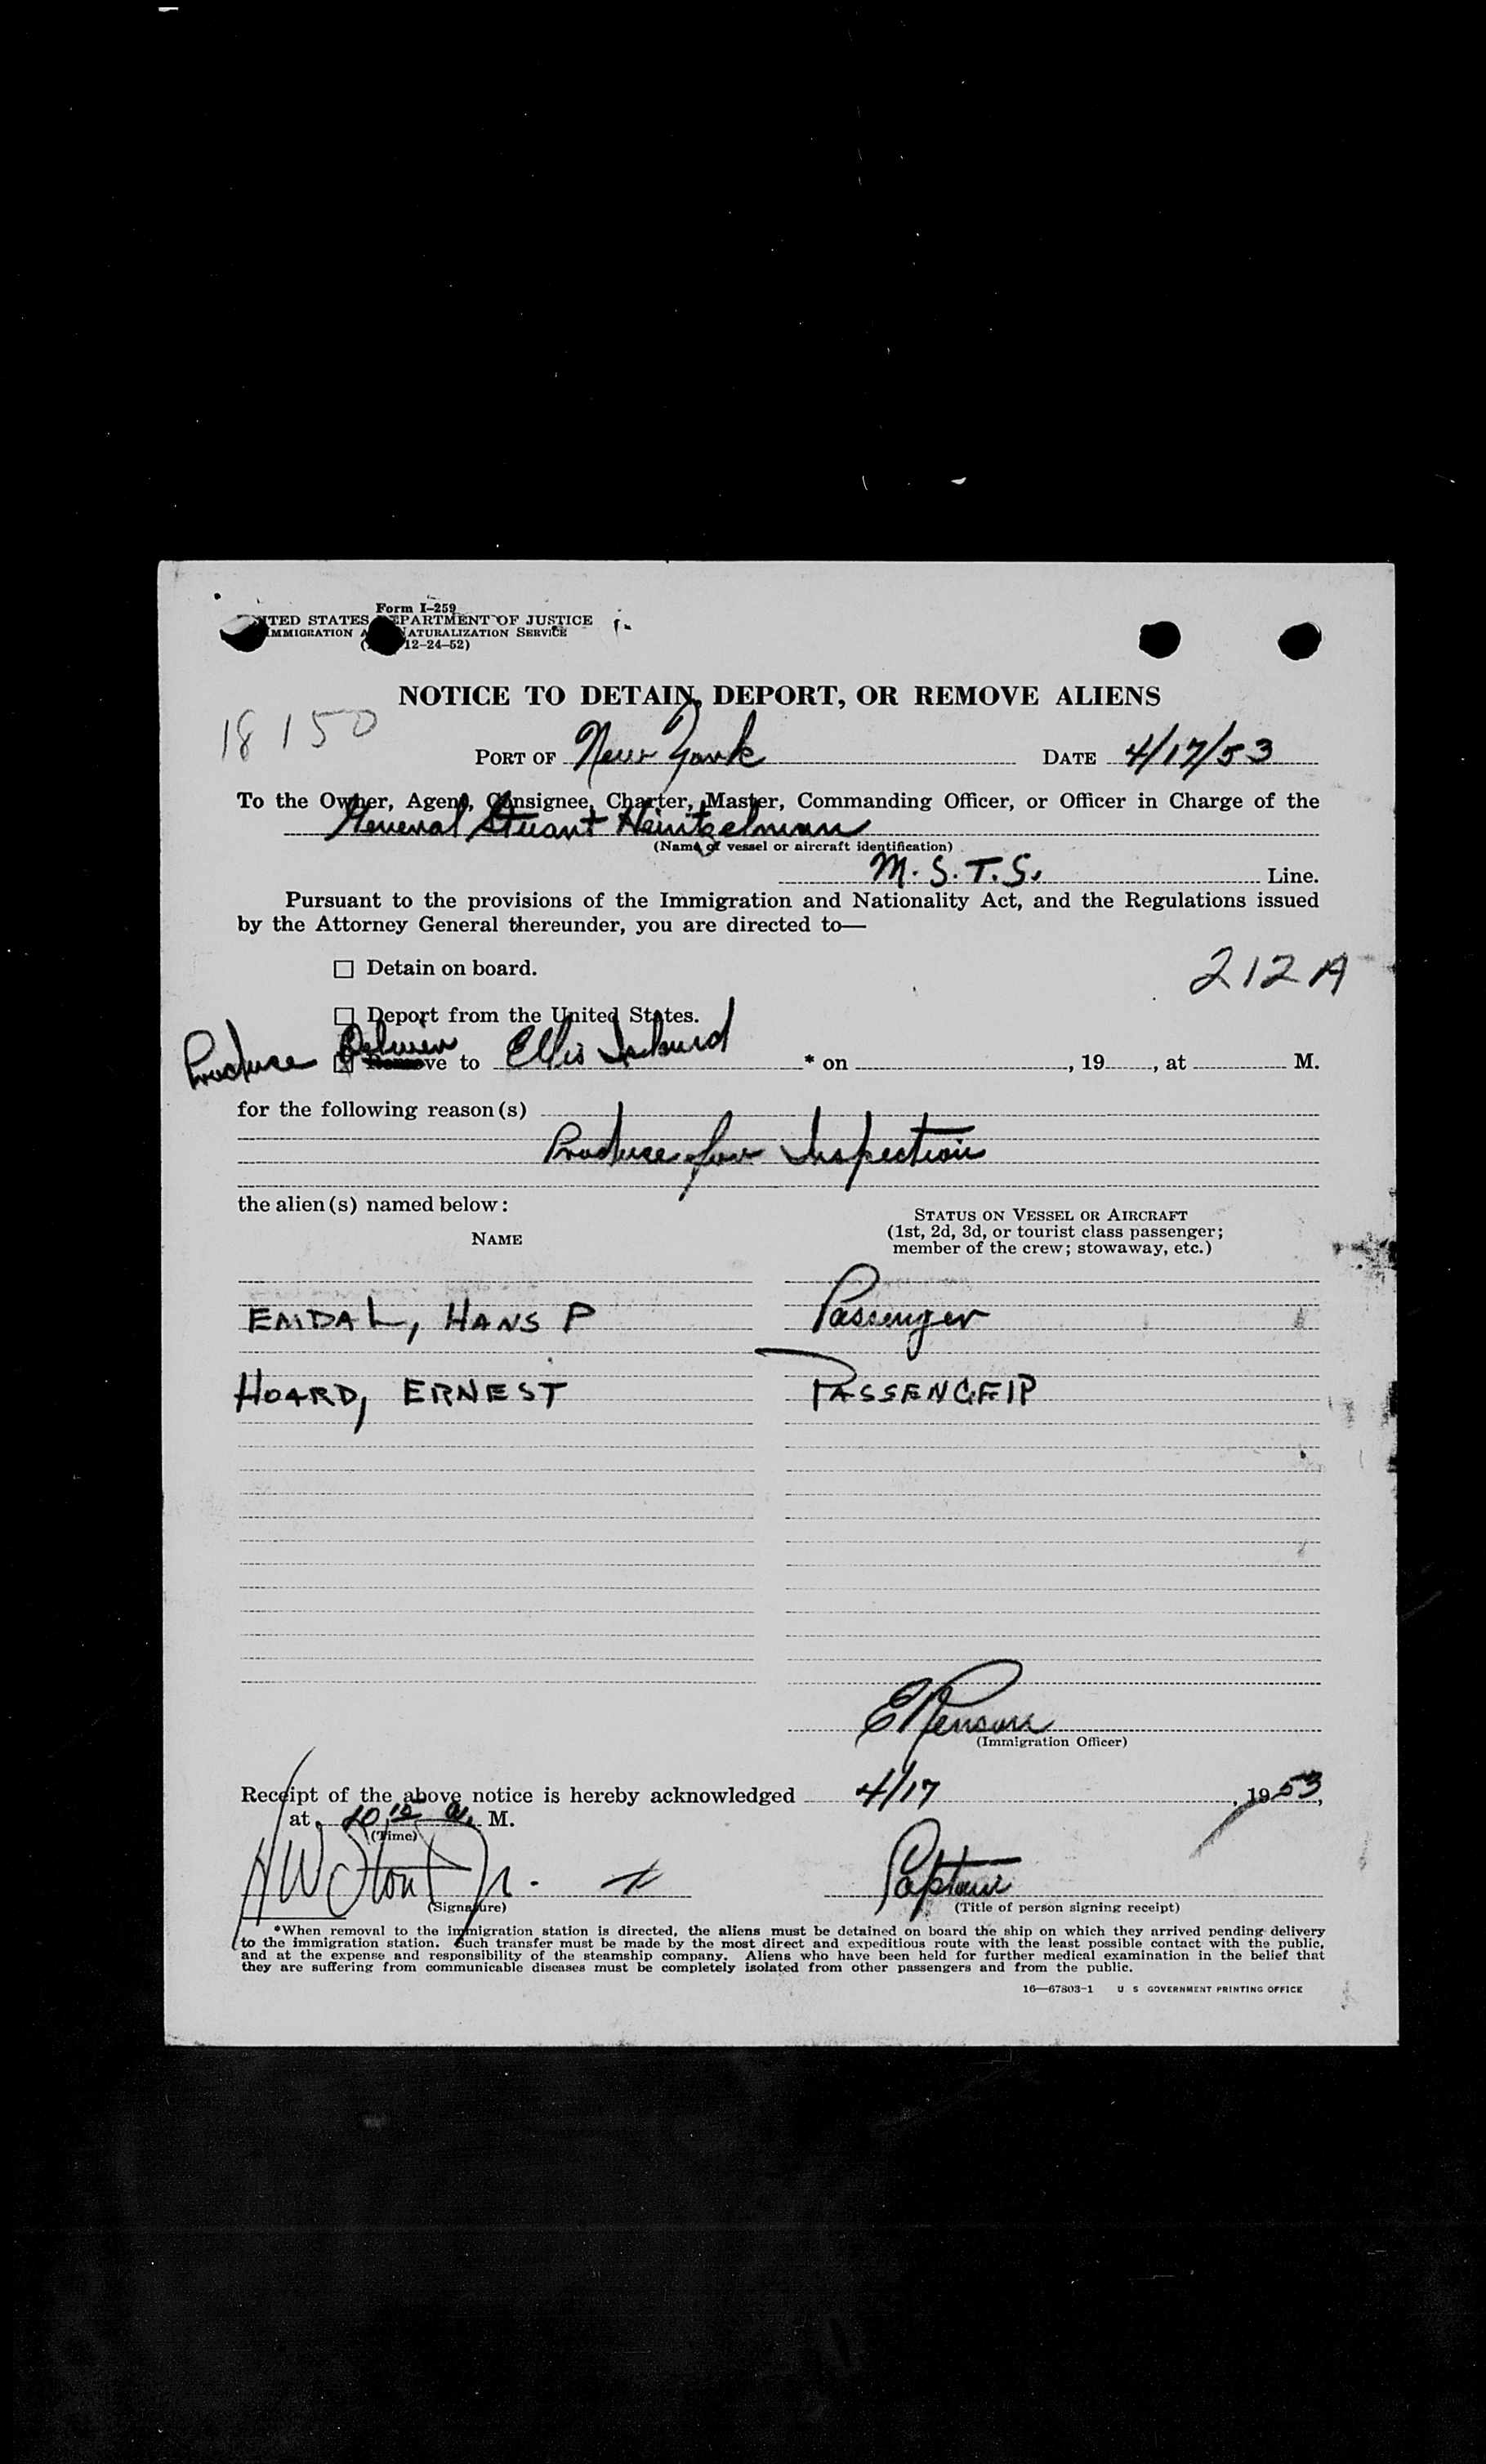 Form I-259
UNITED STATES DEPARTMENT OF JUSTICE
IMMIGRATION AND NATURALIZATION SERVICE
12-24-52)
NOTICE TO DETAIN, DEPORT, OR REMOVE ALIENS
18150
PORT OF New York DATE 4/17/53
To the Owner, Agent, Consignee, Charter, Master, Commanding Officer, or Officer in Charge of the
General Stuart Heintzelman
(Name of vessel or aircraft identification)
M.S.T.S. Line.
Pursuant to the provisions of the Immigration and Nationality Act, and the Regulations issued
by the Attorney General thereunder, you are directed to—
☐ Detain on board.
212A
☐ Deport from the United States.
Produce Deliver to Ellis Island * on , 19 , at M.
for the following reason(s)
Produce for Inspection
the alien(s) named below:
STATUS ON VESSEL OR AIRCRAFT
NAME (1st, 2d, 3d, or tourist class passenger;
member of the crew; stowaway, etc.)
EMDAL, HANS P Passenger
HOARD, ERNEST PASSENGER
(Immigration Officer)
Receipt of the above notice is hereby acknowledged 4/17, 1953,
at 10 15 a. M.
(Time)
Captain
(Signature) (Title of person signing receipt)
*When removal to the immigration station is directed, the aliens must be detained on board the ship on which they arrived pending delivery
to the immigration station. Such transfer must be made by the most direct and expeditious route with the least possible contact with the public,
and at the expense and responsibility of the steamship company. Aliens who have been held for further medical examination in the belief that
they are suffering from communicable diseases must be completely isolated from other passengers and from the public.
16—67803-1 U S GOVERNMENT PRINTING OFFICE